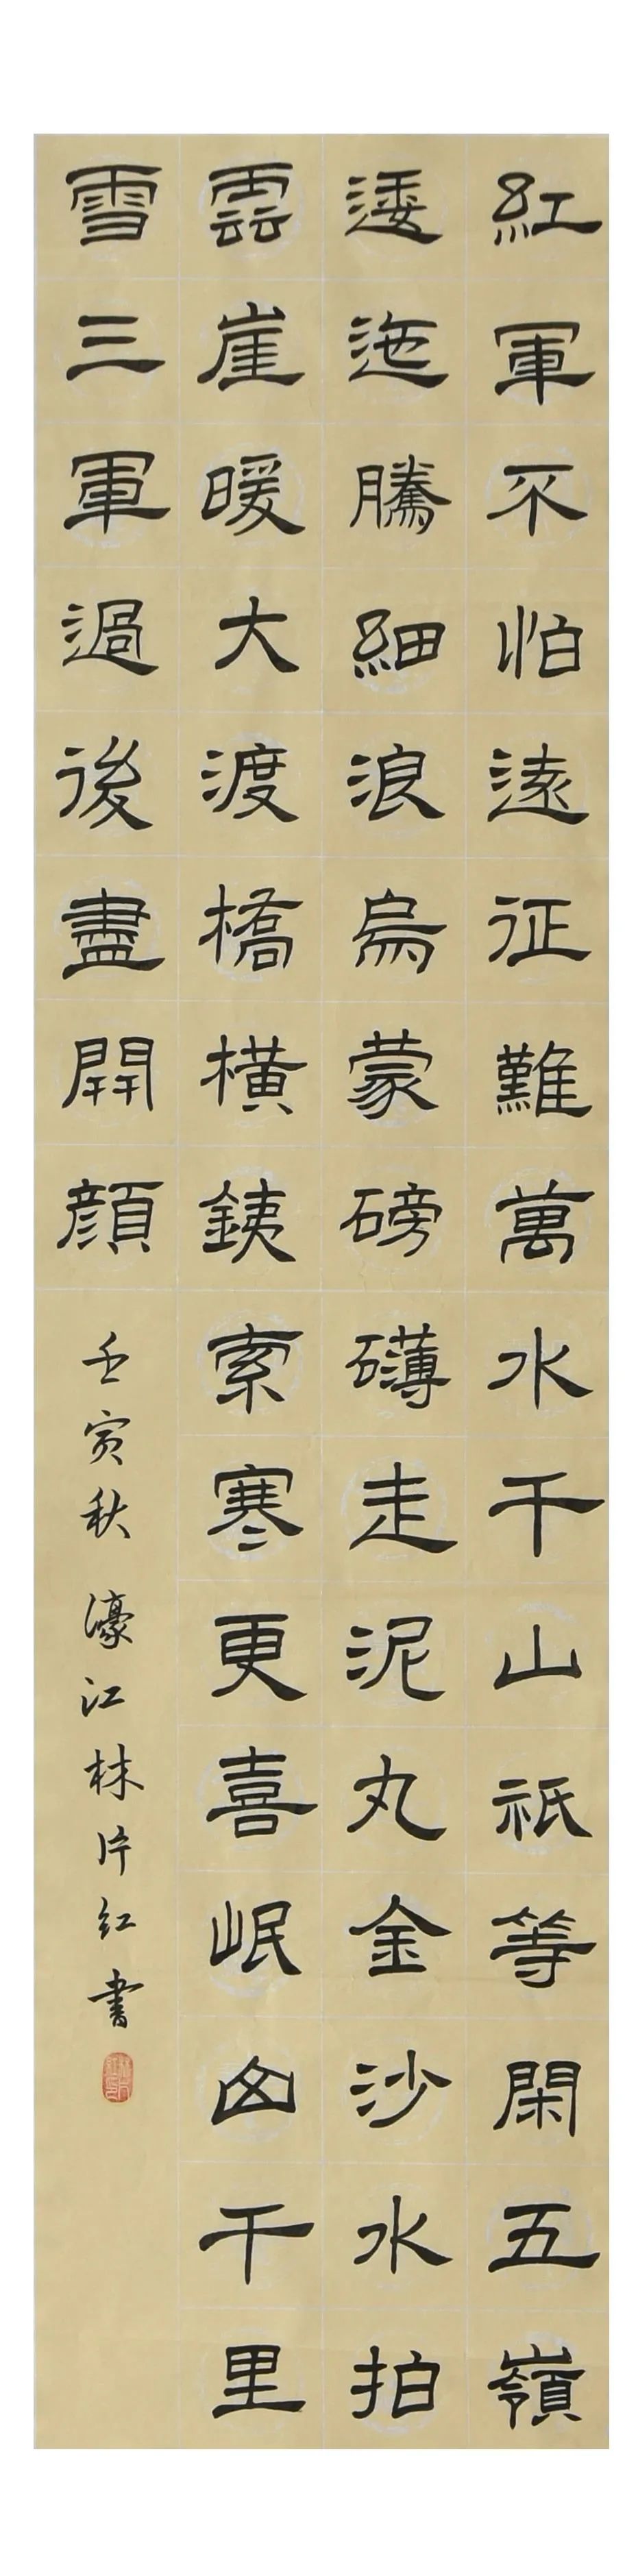 紅軍不怕遠征難萬水千山祇等閑五嶺
逶迤騰細浪烏蒙磅礴走泥丸金沙水拍
雲崖暖大渡橋橫銕索寒更喜岷山千里
雪三軍過後盡開顔
壬寅秋 濠江林片红書